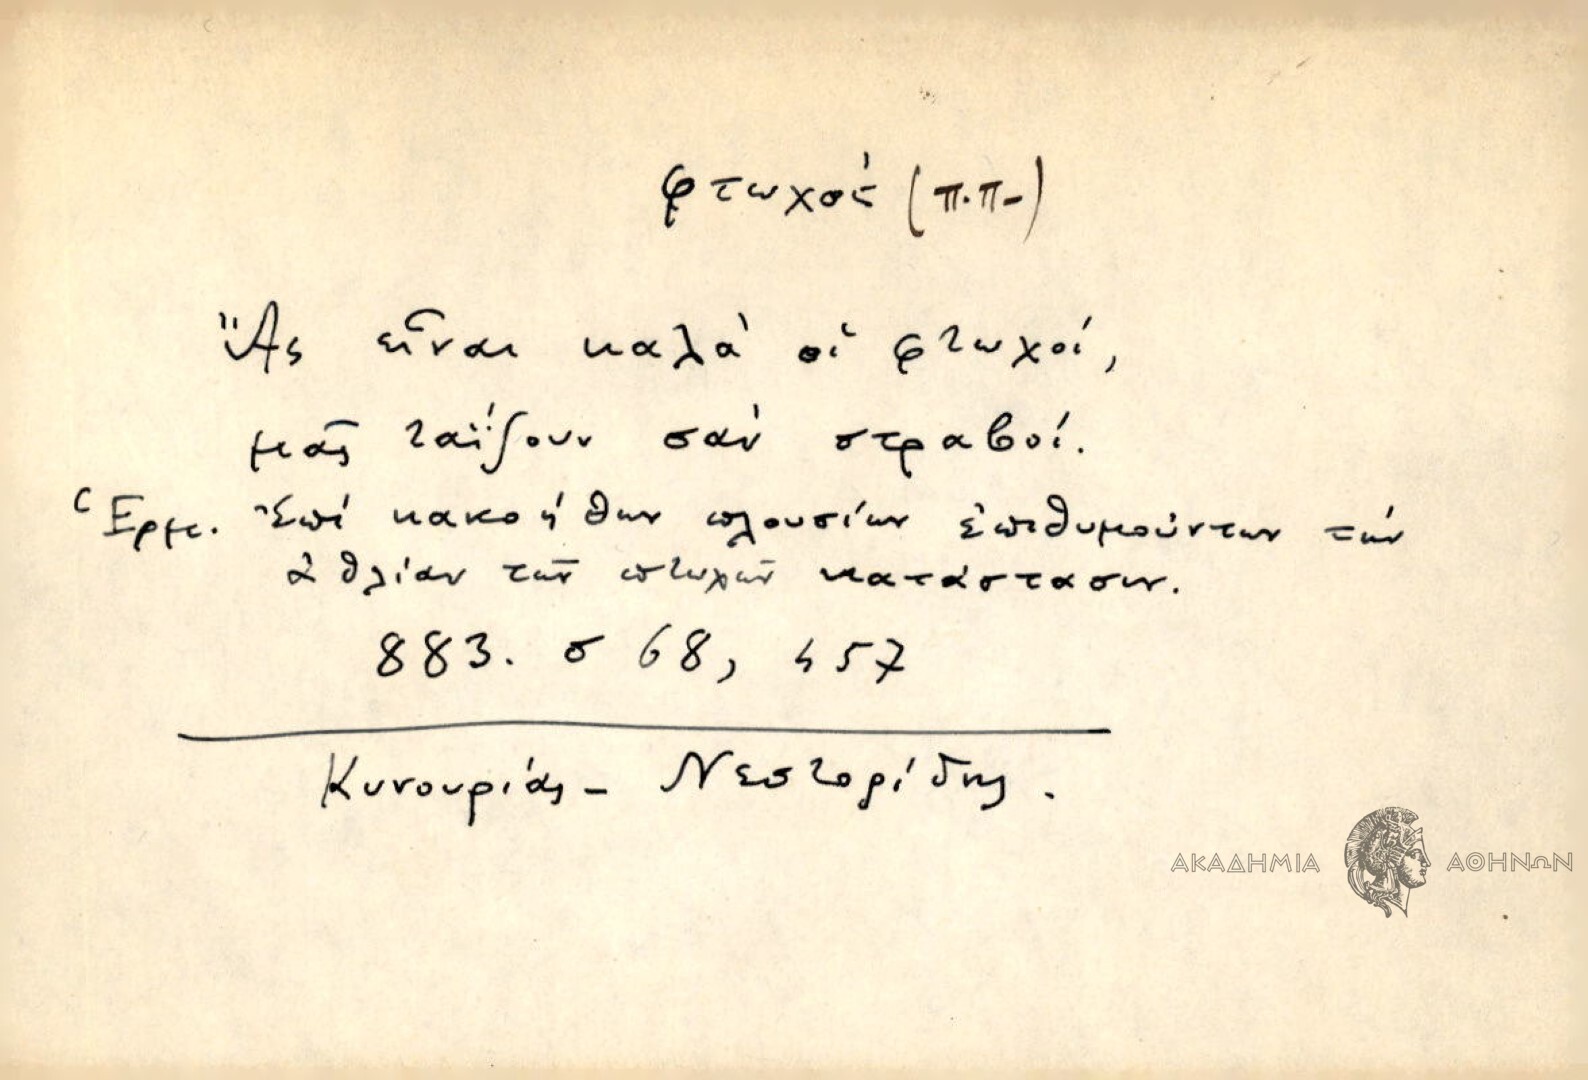 φτωχός (π.π.)
Ἄς εἶναι καλά οἱ φτωχοί,
μᾶς ταΐζουν σάν στραβοί.
Ἑρμ. Ἐπί κακοήθων πλουσίων ἐπιθυμούντων τήν
ἀθλίαν τῶν πτωχῶν κατάστασιν.
883. σ 68, 457
Κυνουρίας - Νεστορίδης.
ΑΚΑΔΗΜΙΑ ΑΘΗΝΩΝ